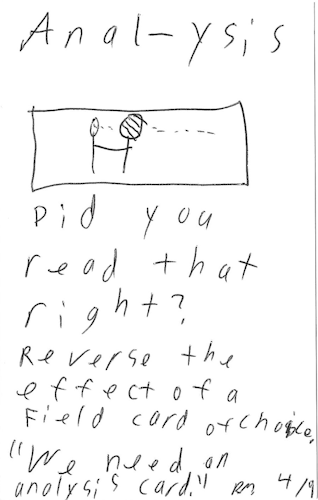 Anal-ysis
Did you
read that
right?
Reverse the
effect of a
Field card of choice.
"We need an
analysis card." RM 4/9